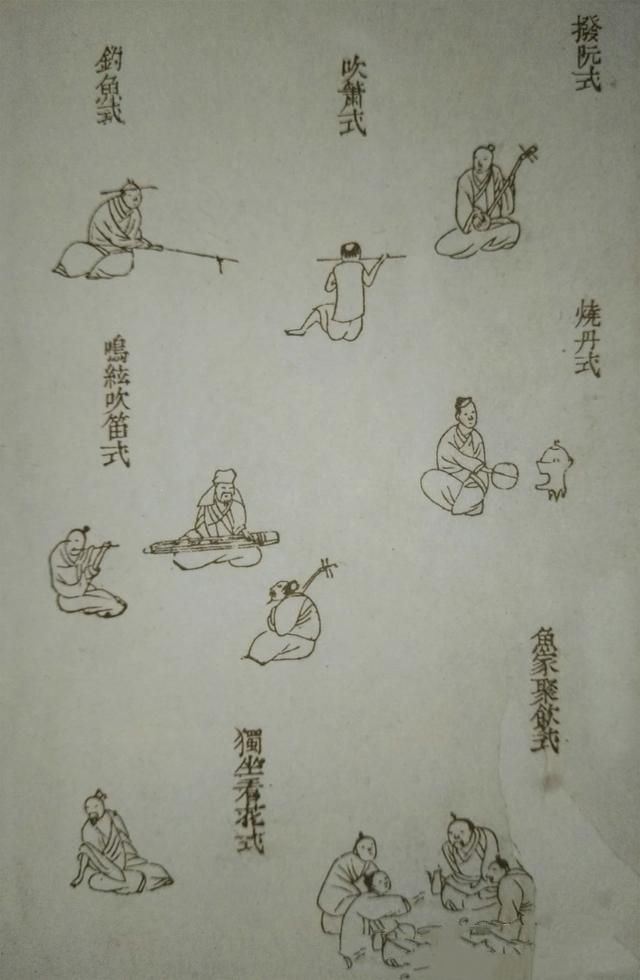 撥阮式
吹簫式
釣魚式
燒丹式
鳴絃吹笛式
魚家聚飲式
獨坐看花式